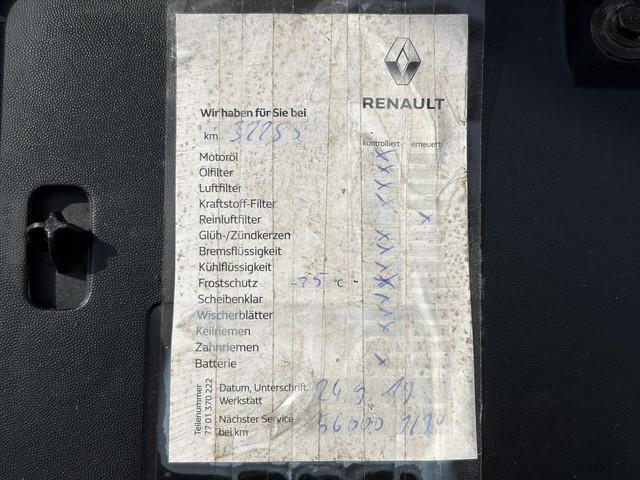 RENAULT
Wir haben für Sie bei
km
kontrolliert erneuert
Motoröl
Ölfilter
Luftfilter
Kraftstoff-Filter
Reinluftfilter
Glüh-/Zündkerzen
Bremsflüssigkeit
Kühlflüssigkeit
Frostschutz -25 °C
Scheibenklar
Wischerblätter
Keilriemen
Zahnriemen
Batterie
Datum, Unterschrift 24 9 19
Werkstatt
Nächster Service 56000
bei km
Teilenummer
77 01 370 222